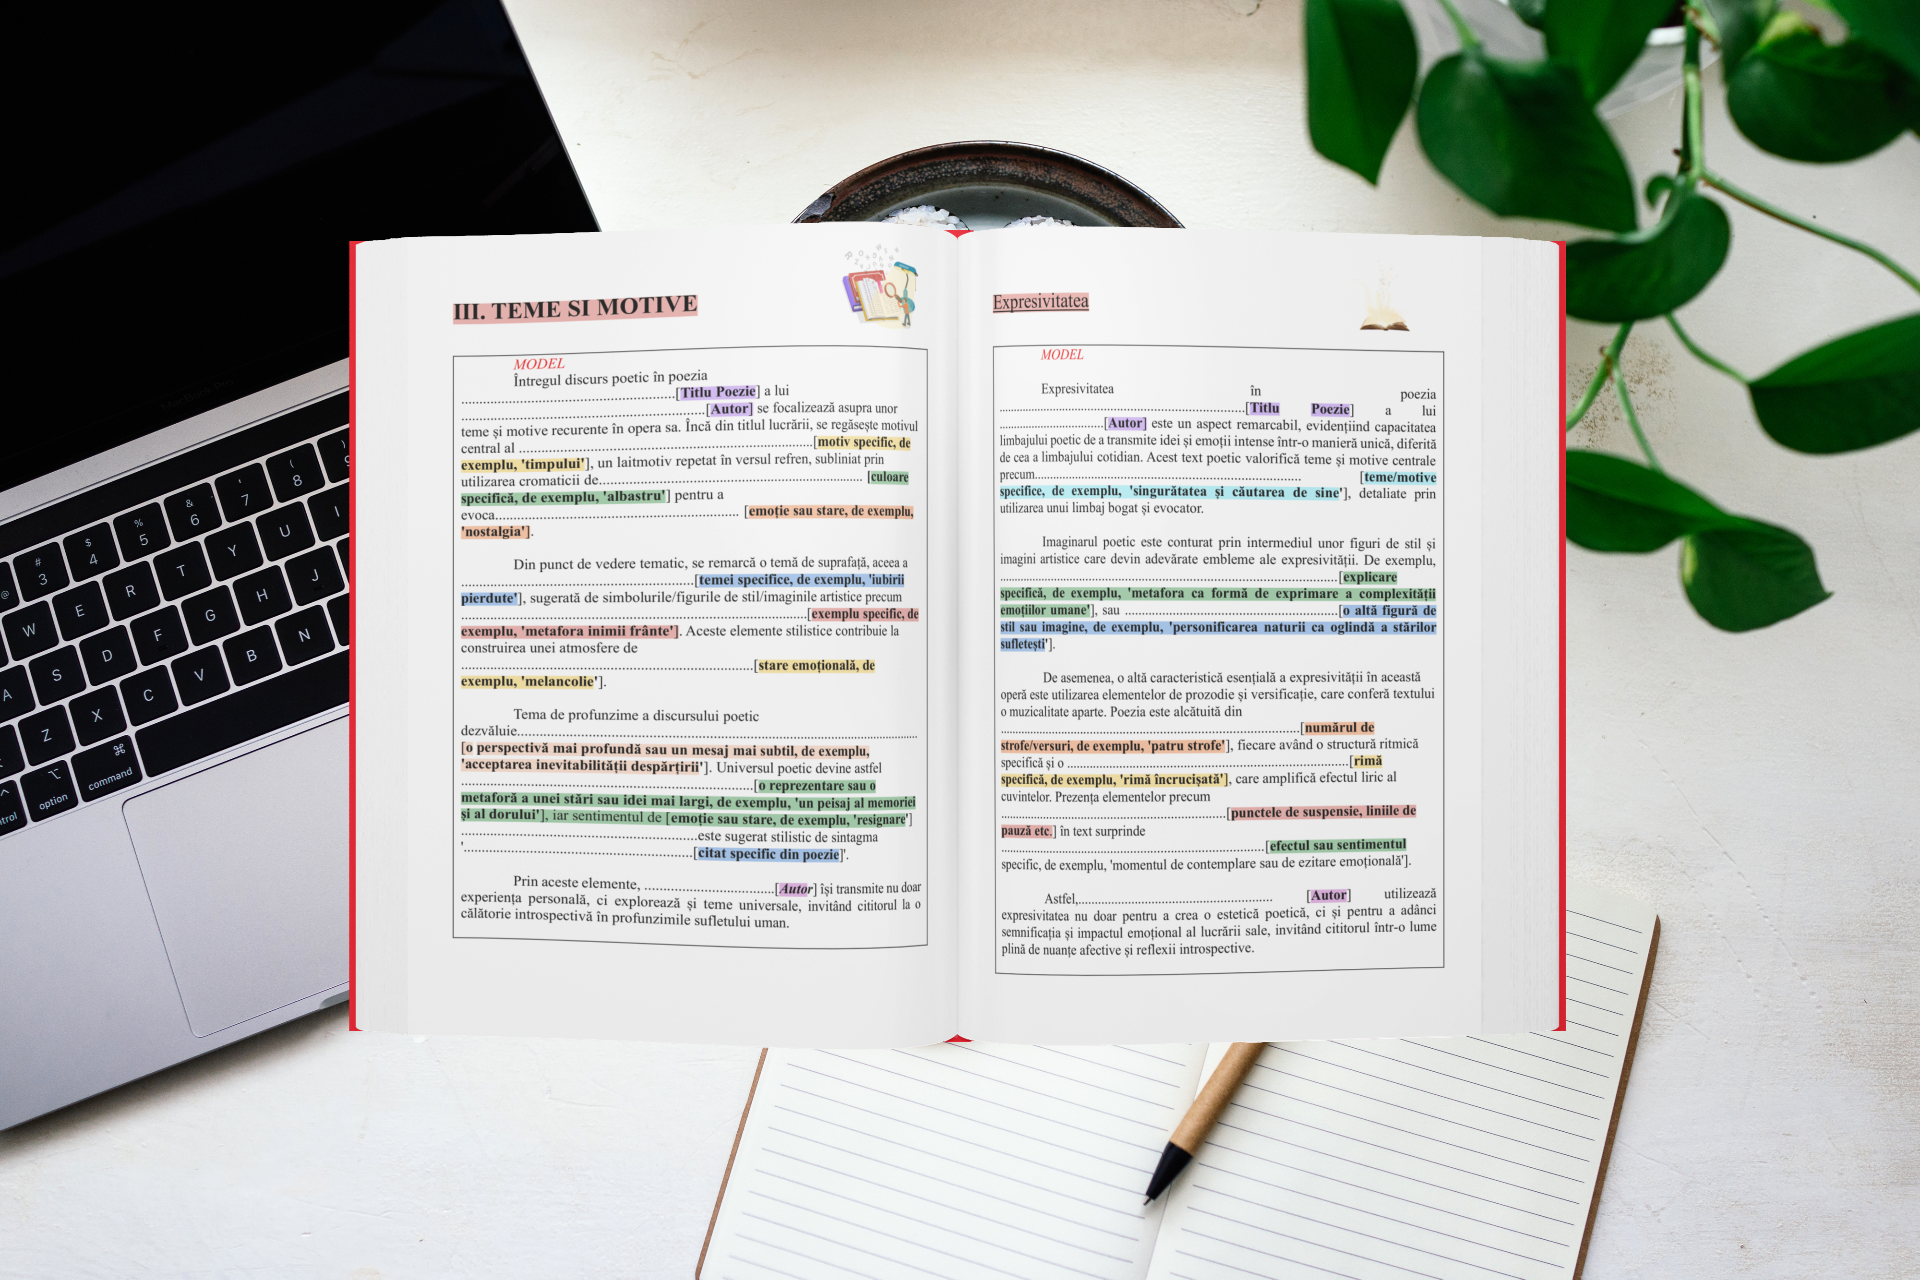 III. TEME SI MOTIVE
MODEL
Întregul discurs poetic în poezia
..........................................................[Titlu Poezie] a lui
..................................................................[Autor] se focalizează asupra unor
teme și motive recurente în opera sa. Încă din titlul lucrării, se regăsește motivul
central al ................................................................................[motiv specific, de
exemplu, 'timpului'], un laitmotiv repetat în versul refren, subliniat prin
utilizarea cromaticii de...................................................................... [culoare
specifică, de exemplu, 'albastru'] pentru a
evoca.................................................................. [emoție sau stare, de exemplu,
'nostalgia'].
Din punct de vedere tematic, se remarcă o temă de suprafață, aceea a
...............................................................[temei specifice, de exemplu, 'iubirii
pierdute'], sugerată de simbolurile/figurile de stil/imaginile artistice precum
..............................................................................................[exemplu specific, de
exemplu, 'metafora inimii frânte']. Aceste elemente stilistice contribuie la
construirea unei atmosfere de
................................................................................[stare emoțională, de
exemplu, 'melancolie'].
Tema de profunzime a discursului poetic
dezvăluie.............................................................................................................
[o perspectivă mai profundă sau un mesaj mai subtil, de exemplu,
'acceptarea inevitabilității despărțirii']. Universul poetic devine astfel
................................................................................[o reprezentare sau o
metaforă a unei stări sau idei mai largi, de exemplu, 'un peisaj al memoriei
și al dorului'], iar sentimentul de [emoție sau stare, de exemplu, 'resignare']
................................................................este sugerat stilistic de sintagma
'..............................................................[citat specific din poezie]'.
Prin aceste elemente, ...................................[Autor] își transmite nu doar
experiența personală, ci explorează și teme universale, invitând cititorul la o
călătorie introspectivă în profunzimile sufletului uman.
Expresivitatea
MODEL
Expresivitatea în poezia
..................................................................[Titlu Poezie] a lui
............................[Autor] este un aspect remarcabil, evidențiind capacitatea
limbajului poetic de a transmite idei și emoții intense într-o manieră unică, diferită
de cea a limbajului cotidian. Acest text poetic valorifică teme și motive centrale
precum........................................................................ [teme/motive
specifice, de exemplu, 'singurătatea și căutarea de sine'], detaliate prin
utilizarea unui limbaj bogat și evocator.
Imaginarul poetic este conturat prin intermediul unor figuri de stil și
imagini artistice care devin adevărate embleme ale expresivității. De exemplu,
...........................................................................................[explicare
specifică, de exemplu, 'metafora ca formă de exprimare a complexității
emoțiilor umane'], sau .........................................................[o altă figură de
stil sau imagine, de exemplu, 'personificarea naturii ca oglindă a stărilor
sufletești'].
De asemenea, o altă caracteristică esențială a expresivității în această
operă este utilizarea elementelor de prozodie și versificație, care conferă textului
o muzicalitate aparte. Poezia este alcătuită din
.................................................................................[numărul de
strofe/versuri, de exemplu, 'patru strofe'], fiecare având o structură ritmică
specifică și o ............................................................................[rimă
specifică, de exemplu, 'rimă încrucișată'], care amplifică efectul liric al
cuvintelor. Prezența elementelor precum
.............................................................[punctele de suspensie, liniile de
pauză etc.] în text surprinde
.......................................................................[efectul sau sentimentul
specific, de exemplu, 'momentul de contemplare sau de ezitare emoțională'].
Astfel,..................................................... [Autor] utilizează
expresivitatea nu doar pentru a crea o estetică poetică, ci și pentru a adânci
semnificația și impactul emoțional al lucrării sale, invitând cititorul într-o lume
plină de nuanțe afective și reflexii introspective.
# 3 $ 4 % 5 & 6 ' 7 ( 8
W E R T Y U I
A S D F G H J
Z X C V B N
option command